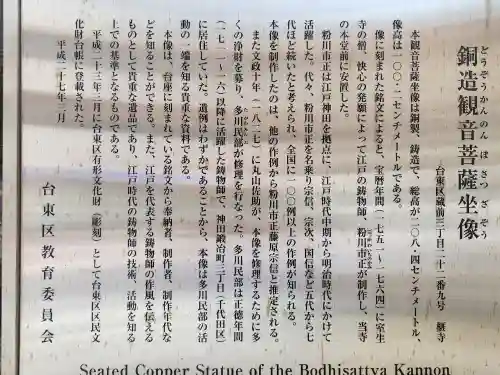 どうぞうかんのんぼさつざぞう
銅造観音菩薩坐像
台東区蔵前三丁目二十二番九号 榧寺
本観音菩薩坐像は銅製、鋳造で、総高が二〇八・四センチメートル、
像高は一〇〇・二センチメートルである。
像に刻まれた銘文によると、宝暦年間(一七五一~一七六四)に室生
寺の僧、快心の発願によって江戸の鋳物師、粉川市正が制作し、当寺
の本堂前に安置した。
粉川市正は江戸神田を拠点に、江戸時代中期から明治時代にかけて
活躍した。代々、粉川市正を名乗り宗信、宗次、国信など五代から七
代ほど続いたと考えられ、全国に一〇〇例以上の作例が知られる。
本像を制作したのは、他の作例から粉川市正藤原宗信と推定される。
また文政十年(一八二七)に丸山佐助が、本像を修理するために多
くの浄財を募り、多川民部が修理を行なった。多川民部は正徳年間
(一七一一~一六)以降に活躍した鋳物師で、神田鍛冶町三丁目(千代田区)
に居住していた。遺例はわずかであることから、本像は多川民部の活
動の一端を知る貴重な資料である。
本像は、台座に刻まれている銘文から奉納者、制作者、制作年代な
どを知ることができる。また、江戸を代表する鋳物師の作風を伝える
ものとして貴重な遺品であり、江戸時代の鋳物師の技術、活動を知る
上での基準となるものである。
平成二十三年三月に台東区有形文化財(彫刻)として台東区区民文
化財台帳に登載された。
平成二十七年三月
台東区教育委員会
Seated Copper Statue of the Bodhisattva Kannon